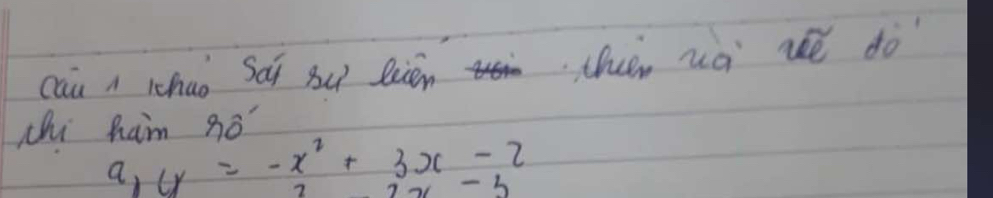 Câu 1 khảo sát sự biến thiên và vẽ đồ
thị hàm số
a, y = -x² + 3x - 2